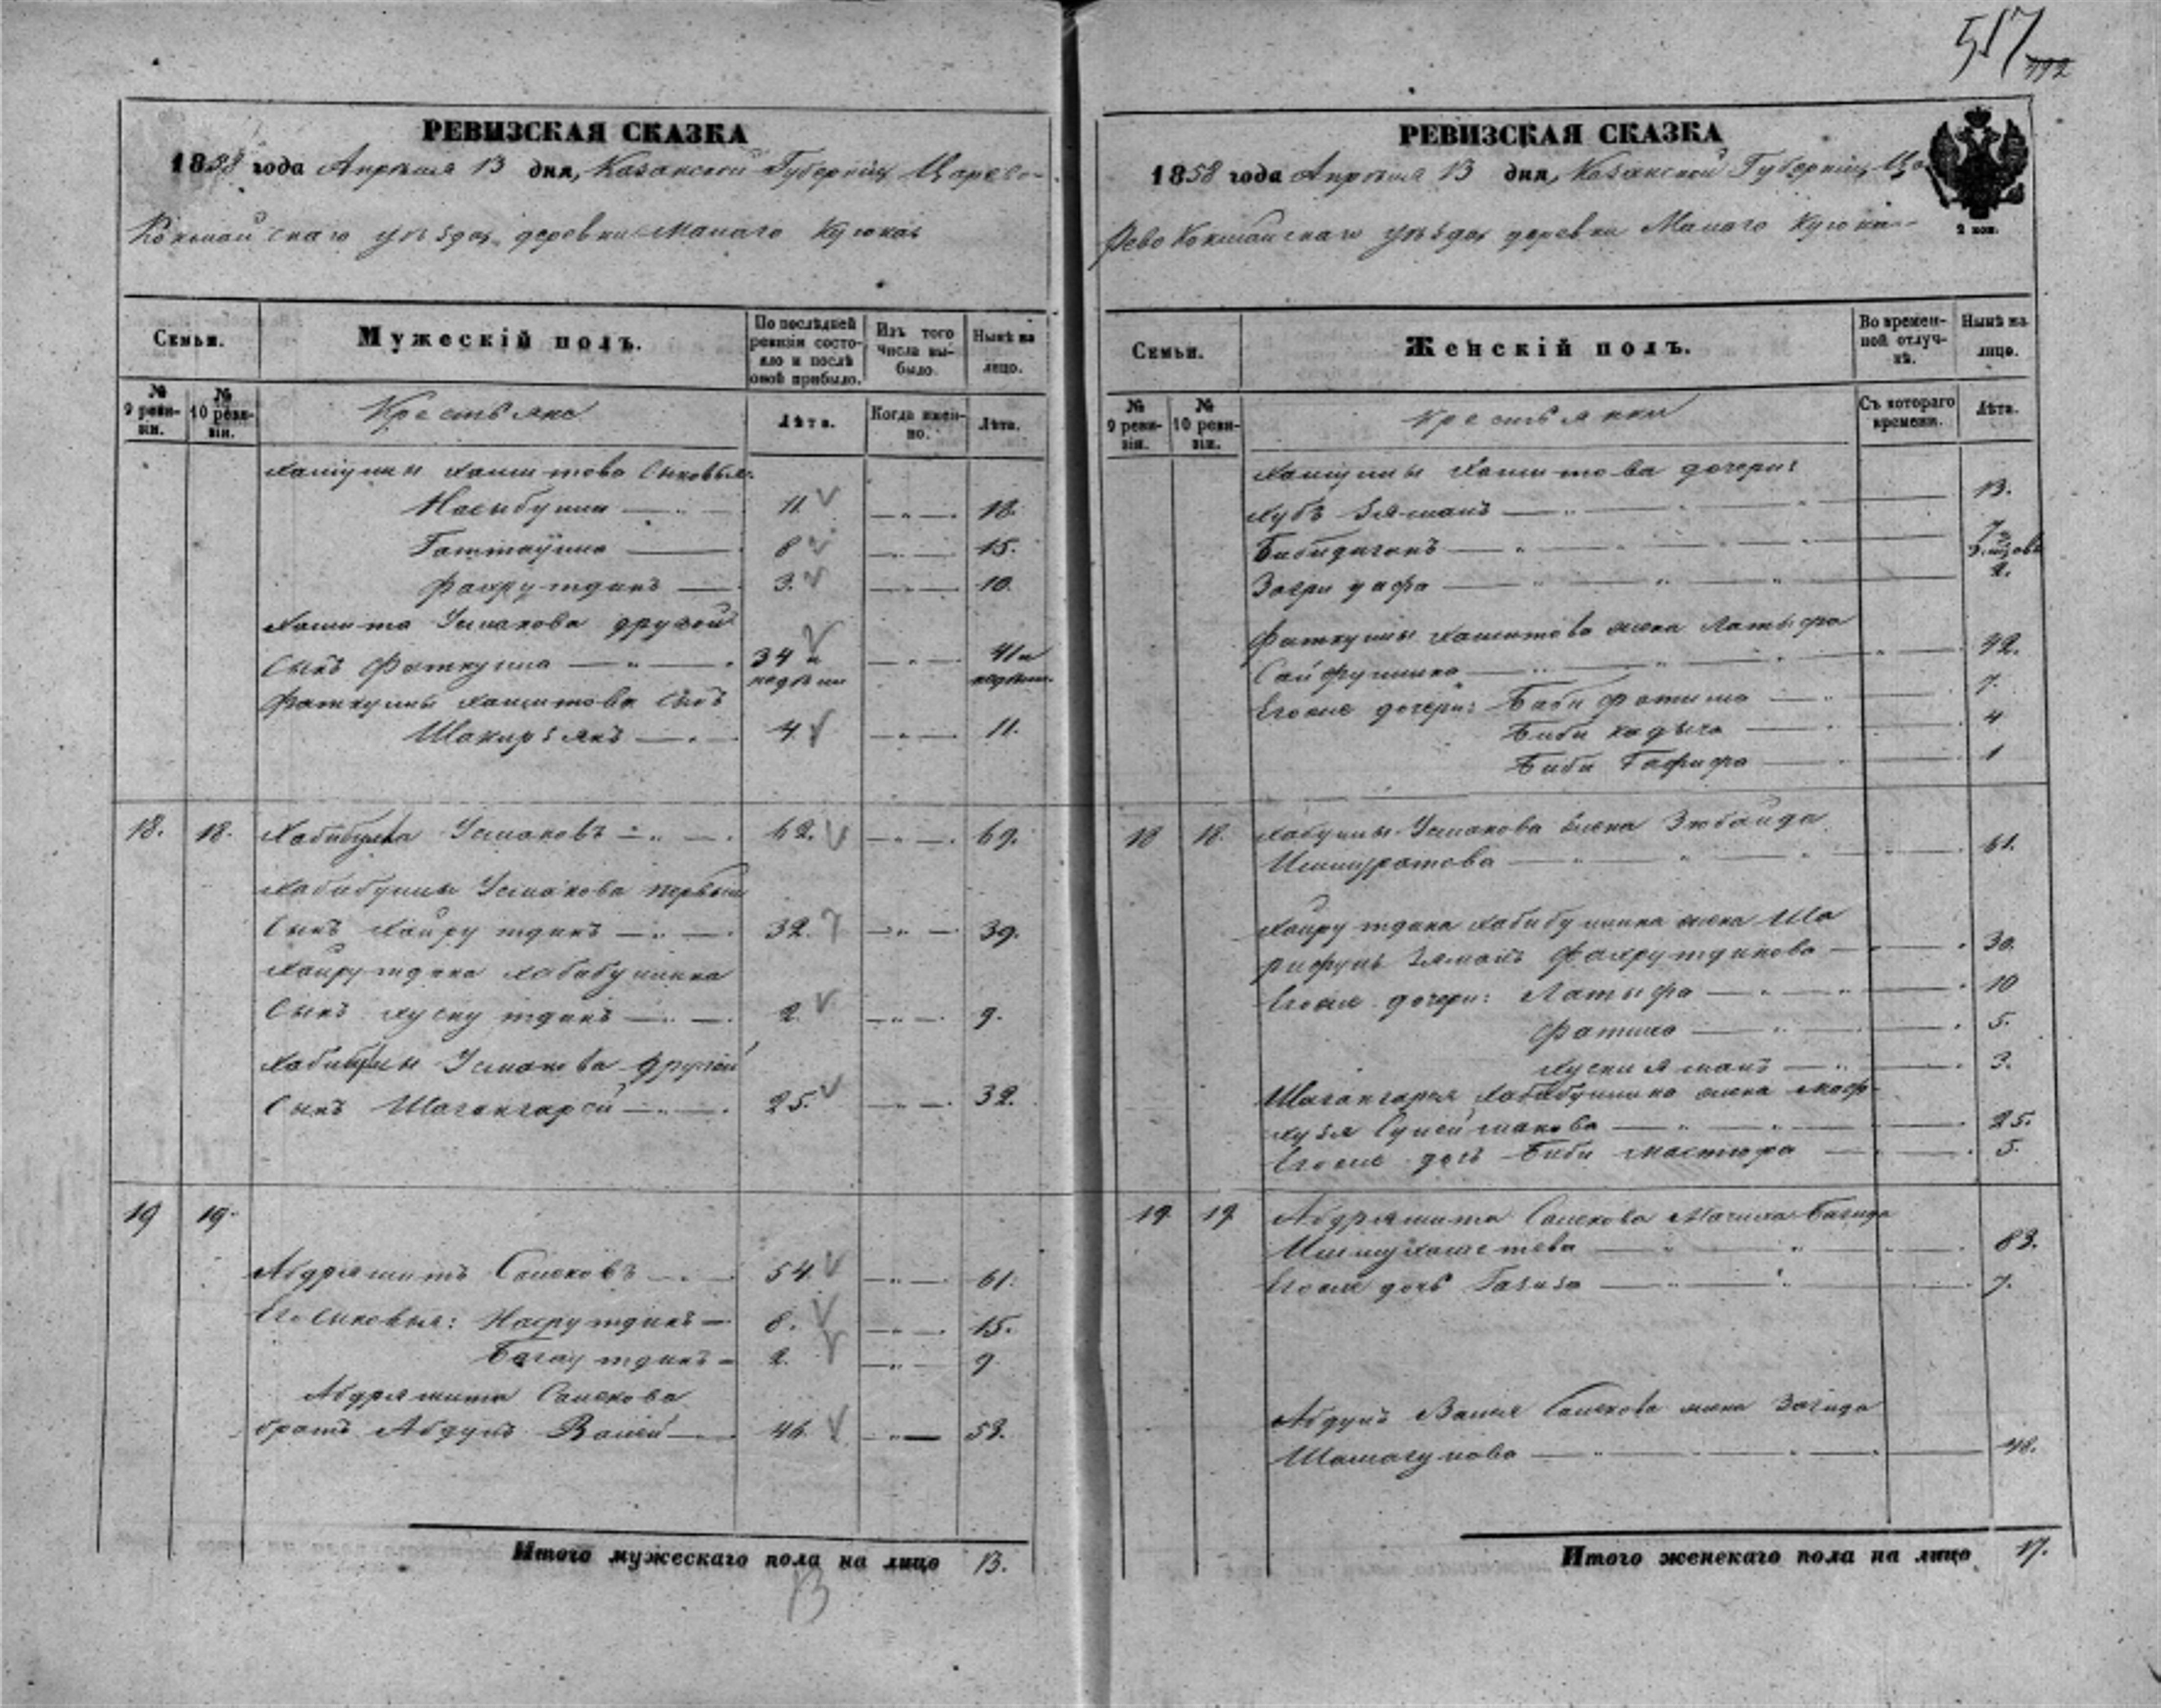 517
492
РЕВИЗСКАЯ СКАЗКА
1858 года Апрѣля 13 дня, Казанской Губерніи, Царево-
Кокшайскаго уѣзда, деревни Малаго Кугюка
Семьи.
Мужескій полъ.
По послѣдней ревизіи состояло и послѣ оной прибыло.
Изъ того числа выбыло.
Нынѣ на лицо.
№ 9 ревизіи.
№ 10 ревизіи.
Крестьяне
Лѣта.
Когда именно.
Лѣта.
Халиуллы Хамитова сыновья:
Насыбулла 11. 18.
Гатаулла 8 15.
Фахрутдинъ 3. 10.
Хамита Усманова другой
сынъ Фаткулла 34 и 41 и
Фаткуллы Хамитова сынъ
Шакирзянъ 4 11.
18. 18. Хабибулла Усмановъ 62. 69.
Хабибуллы Усманова первый
сынъ Хайрутдинъ 32. 39.
Хайрутдина Хабибуллина
сынъ Хуснутдинъ 2. 9.
Хабибуллы Усманова другой
сынъ Шагингарей 25. 32.
19 19.
Абдряшитъ Салиховъ 54. 61.
Его сыновья: Насрутдинъ 8. 15.
Багаутдинъ 2. 9.
Абдряшита Салихова
братъ Абдулъ Валей 46. 53.
Итого мужескаго пола на лицо 13.
13
РЕВИЗСКАЯ СКАЗКА
1858 года Апрѣля 13 дня, Казанской Губерніи, Ца-
рево Кокшайскаго уѣзда, деревни Малаго Кугюка
2 коп.
Семьи.
Женскій полъ.
Во временной отлучкѣ.
Нынѣ на лицо.
№ 9 ревизіи.
№ 10 ревизіи.
Крестьянки
Съ котораго времени.
Лѣта.
Халиуллы Хамитова дочери:
Хубъ Зяманъ 13.
Загри 2.
Фаткуллы Хамитова жена Латыфа
Сайфуллина 42.
Его же дочери: Биби Фатима 7.
Биби Хадыча 4
Биби Гафифа 1
18 18. Хабуллы Усманова жена Зюбайда
Ишмуратова 61.
Хайрутдина Хабибуллина жена Ша
рифулъ Зяманъ Фахрутдинова 30.
Его же дочери: Латыфа 10
Фатима 5.
Хусни Яманъ 3.
Шагингарея Хабибуллина жена Маф-
хузя Сулейманова 25.
Его же дочь Биби Мастюра 5.
19 19 Абдряшита Салихова мачиха Багида
Ишмухаметова 83.
Его же дочь Газиза 7.
Абдулъ Валия Салихова жена Загида
Шамагулова 48.
Итого женскаго пола на лицо 17.